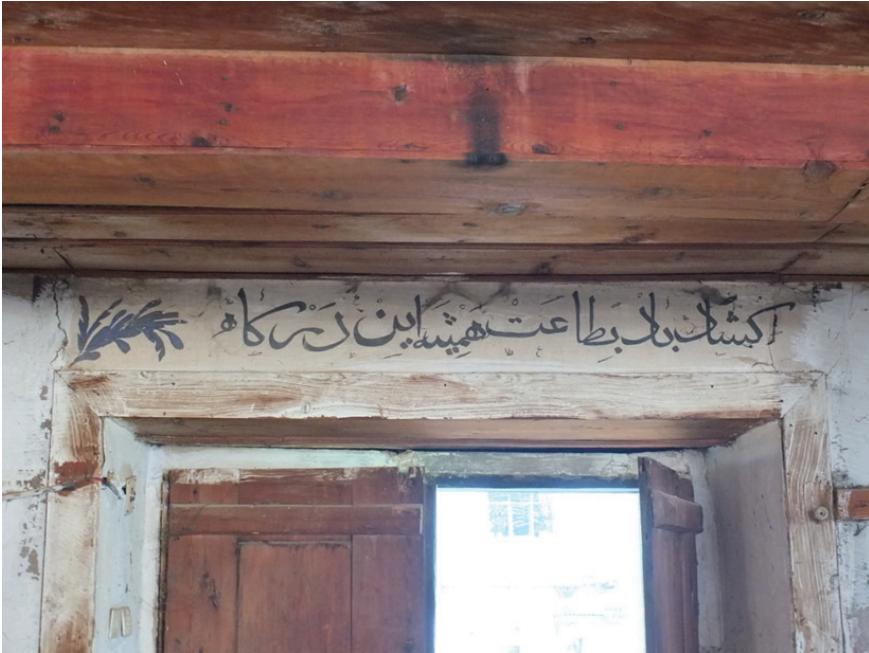 اکشاد باد بطاعت همیشه این درکاه